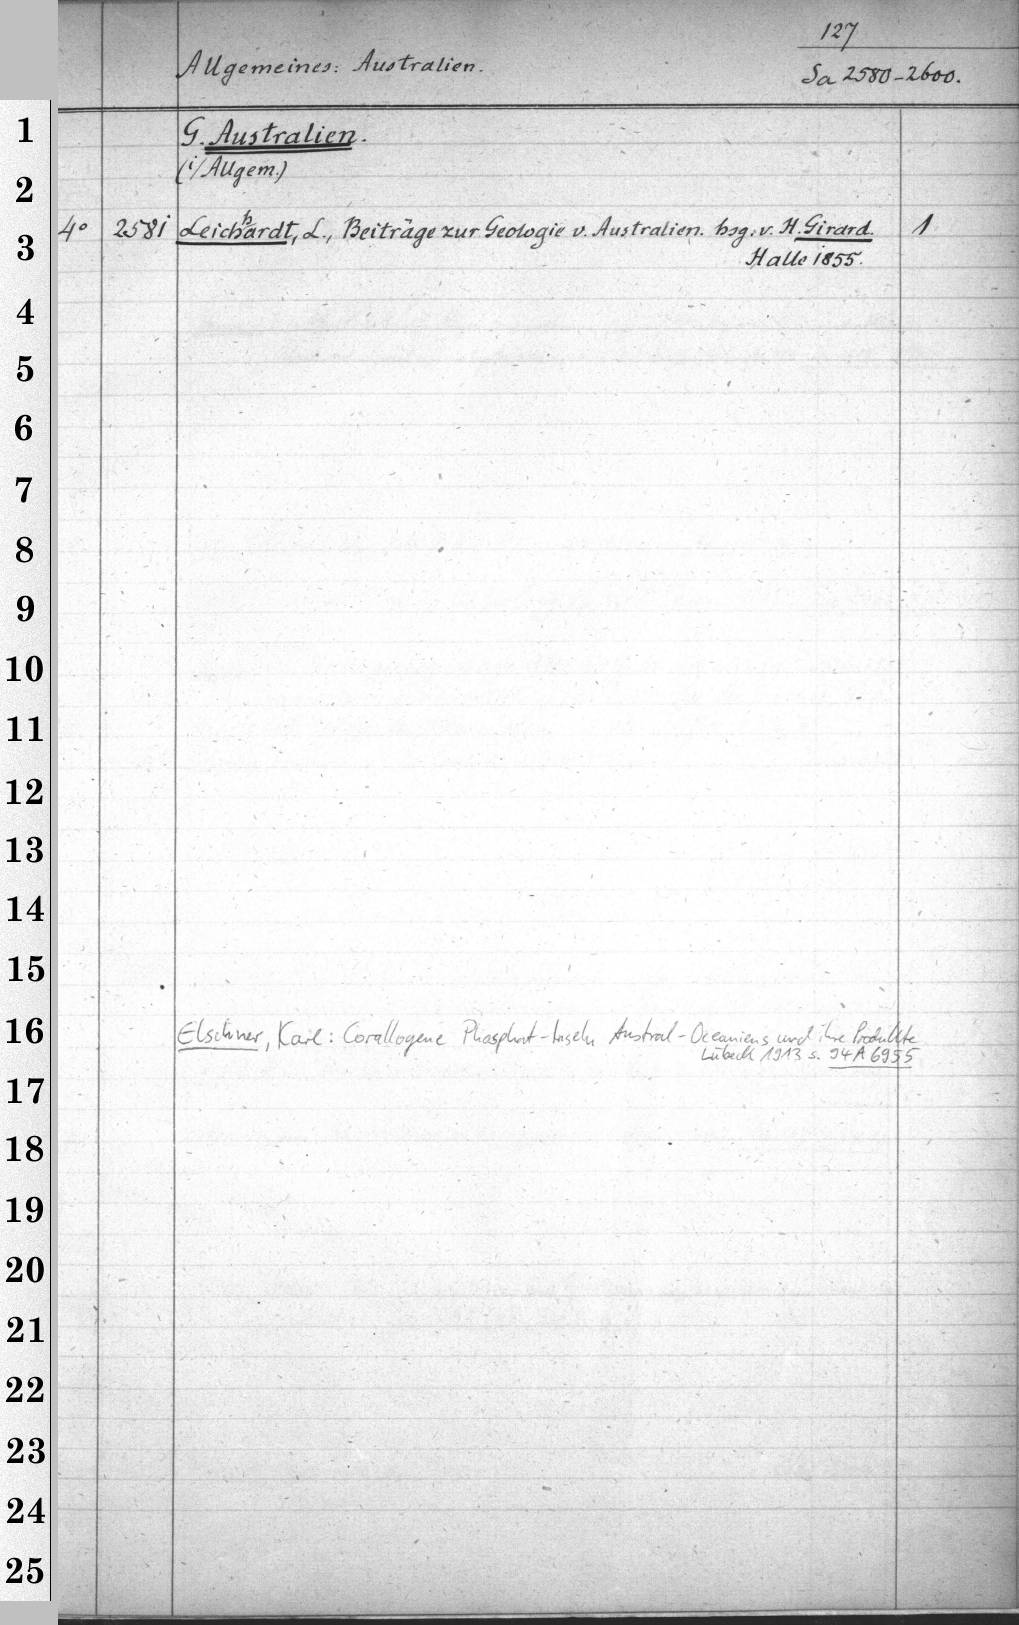 127
Allgemeines: Australien.
Sa 2580-2600.
1
G. Australien.
(i/Allgem.)
2
4° 2581 Leichhardt, L., Beiträge zur Geologie v. Australien. hsg. v. H. Girard. 1
3
Halle 1855.
4
5
6
7
8
9
10
11
12
13
14
15
16
Elschner, Karl: Corallogene Phosphat-Inseln Austral-Oceaniens und ihre Produkte
Lübeck 1913 s. 94 A 6955
17
18
19
20
21
22
23
24
25